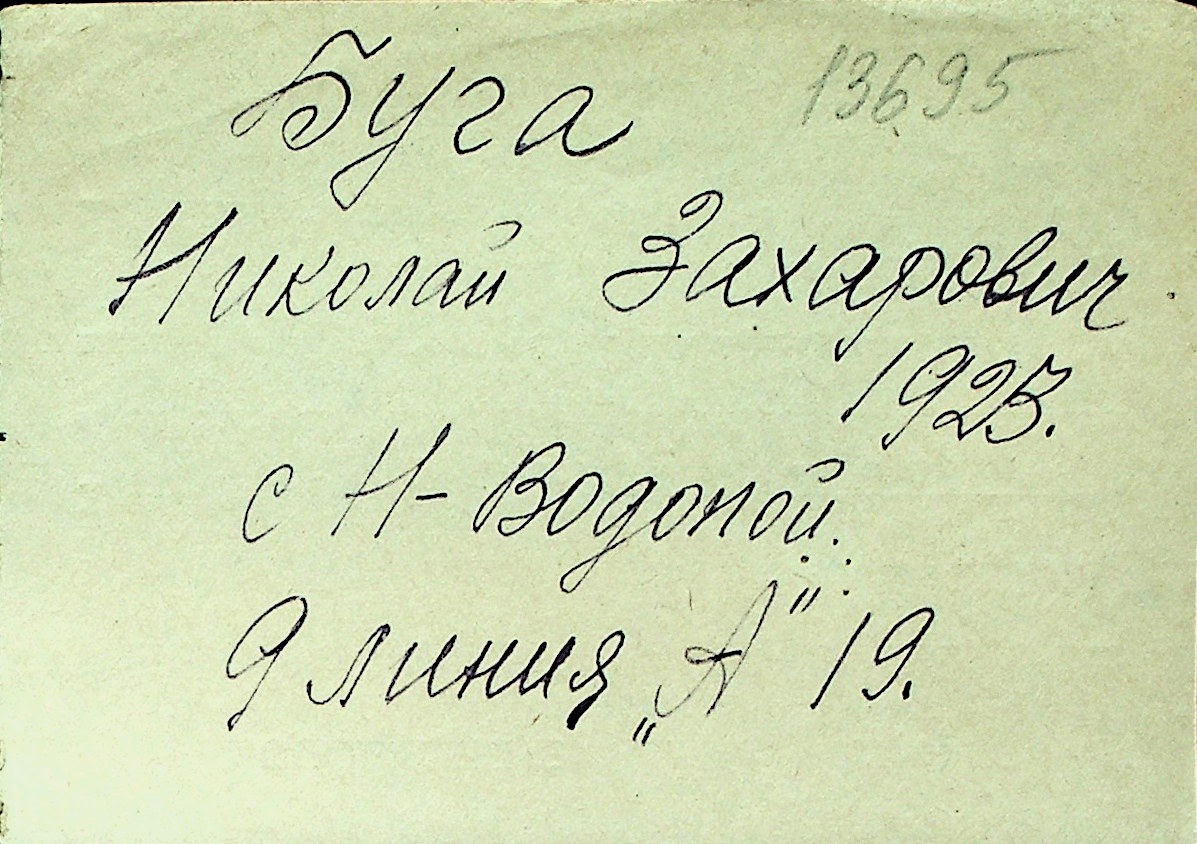 Буга 13695
Николай Захарович
1923.
с Н-Водопой.
9 линия „А" 19.